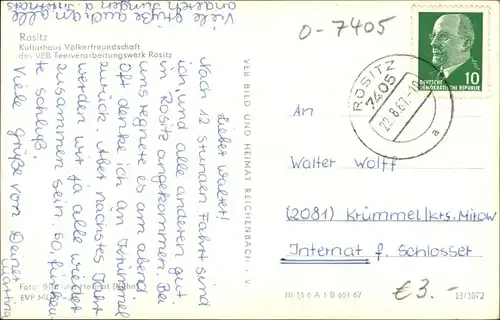 Viele Grüße auch an alle
anderen Jungen d. Internats
0-7405
Rositz
Kulturhaus Völkerfreundschaft
des VEB Teerverarbeitungswerk Rositz
Lieber Walter!
Nach 12 Stunden Fahrt sind
ich, und alle anderen gut
in Rositz angekommen. Bei
uns regnete es am abend.
Oft denke ich an Krümmel
zurück. Aber nächstes Jahr
werden wir ja alle wieder
zusammen sein. So, für heu-
te schluß.
Viele Grüße von Deiner
Martina
Foto: Bild und Heimat
EVP MDN
VEB BILD UND HEIMAT REICHENBACH i. V.
ROSITZ
7405
22.8.67.-10
a
DEUTSCHE
DEMOKRATISCHE REPUBLIK
10
An
Walter Wolff
(2081) Krümmel/Krs. Mirow
Internat f. Schlosser
€ 3.-
III 18 6 A 1 B 651 67
13/1072